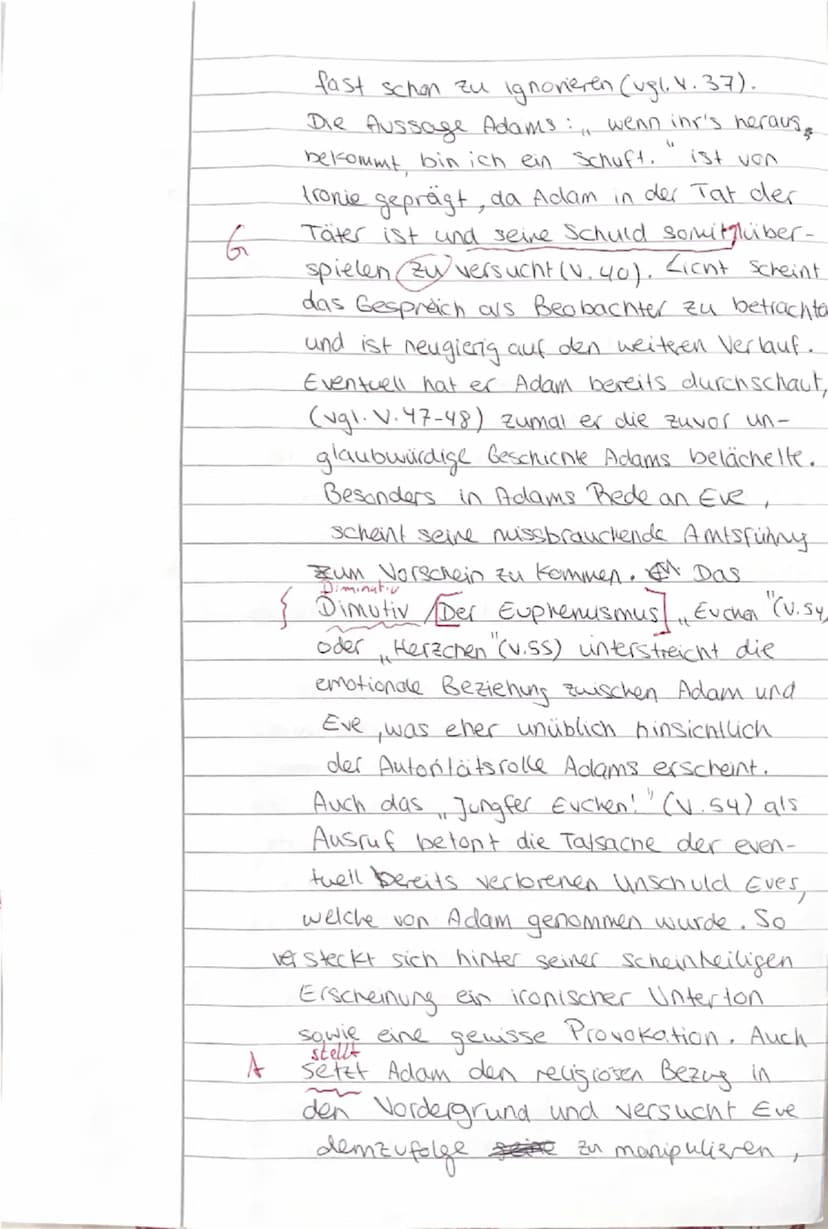 fast schon zu ignorieren (vgl. V. 37).
Die Aussage Adams: „wenn ihr's heraus
bekommt, bin ich ein Schuft." ist von
Ironie geprägt, da Adam in der Tat der
G Täter ist und seine Schuld somit über-
spielen zu versucht (V. 40). Licht scheint
das Gespräch als Beobachter zu betrachte
und ist neugierig auf den weiteren Verlauf.
Eventuell hat er Adam bereits durchschaut,
(vgl. V. 47-48) zumal er die zuvor un-
glaubwürdige Geschichte Adams belächelte.
Besonders in Adams Rede an Eve,
scheint seine missbrauchende Amtsführng
zum Vorschein zu kommen. Das
Diminutiv
Dimutiv / [Der Euphemismus] „Evchen" (V. 54,
oder „Herzchen" (V. 55) unterstreicht die
emotionale Beziehung zwischen Adam und
Eve, was eher unüblich hinsichtlich
der Autoritätsrolle Adams erscheint.
Auch das „Jungfer Evchen!" (V. 54) als
Ausruf betont die Tatsache der even-
tuell bereits verlorenen Unschuld Eves,
welche von Adam genommen wurde. So
versteckt sich hinter seiner scheinheiligen
Erscheinung ein ironischer Unterton
sowie eine gewisse Provokation. Auch
stellt
A setzt Adam den religiösen Bezug in
den Vordergrund und versucht Eve
demzufolge zu manipulieren,